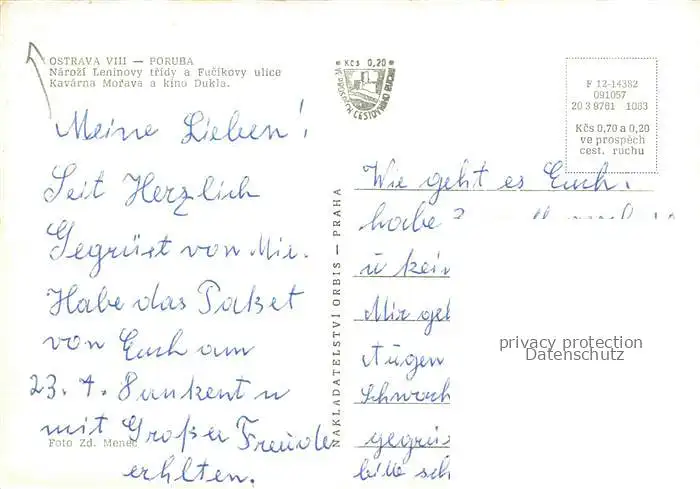 OSTRAVA VIII — PORUBA
Nároží Leninovy třídy a Fučíkovy ulice
Kavárna Morava a kino Dukla.
Meine Lieben!
Seit Herzlich
Gegrüst von Mir.
Habe das Paket
von Euch am
23. 4. Dankent u
mit Großer Freude
erhlten.
Foto Zd. Meneč
NAKLADATELSTVÍ ORBIS — PRAHA
Kčs 0,20
VE PROSPĚCH CESTOVNÍHO RUCHU
F 12-14382
091057
20 3 9761 1083
Kčs 0,70 a 0,20
ve prospěch
cest. ruchu
Wie geht es Euch,
habe
u kein
Mir geh
Augen
Schwach
gegrüs
bitte sch
privacy protection
Datenschutz